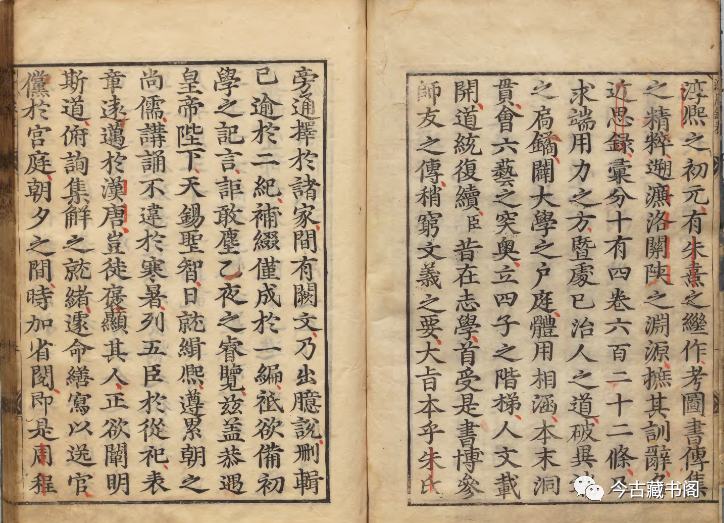 淳熙之初元有朱熹之繼作考圖書傳集
之精粹遡濂洛關陜之淵源摭其訓辭
近思錄彙分十有四卷六百二十二條
求端用力之方暨處已治人之道破異
之扃鐍闢大學之户庭體用相涵本末洞
貫會六藝之突奥立四子之階梯人文載
開道統復續臣昔在志學首受是書博參
師友之傳稍窮文義之要大旨本乎朱氏
旁通擇於諸家間有闕文乃出臆說刪輯
已逾於二紀補綴僅成於一編祗欲備初
學之記言詎敢塵乙夜之睿覽兹益恭遇
皇帝陛下天錫聖智日就緝熙遵累朝之
尚儒講誦不違於寒暑列五臣於從祀表
章遠邁於漢唐豈徒褒顯其人正欲闡明
斯道俯詢集解之就緒遽命繕寫以送官
儻於宮庭朝夕之間時加省閱即是周程
今古藏书阁